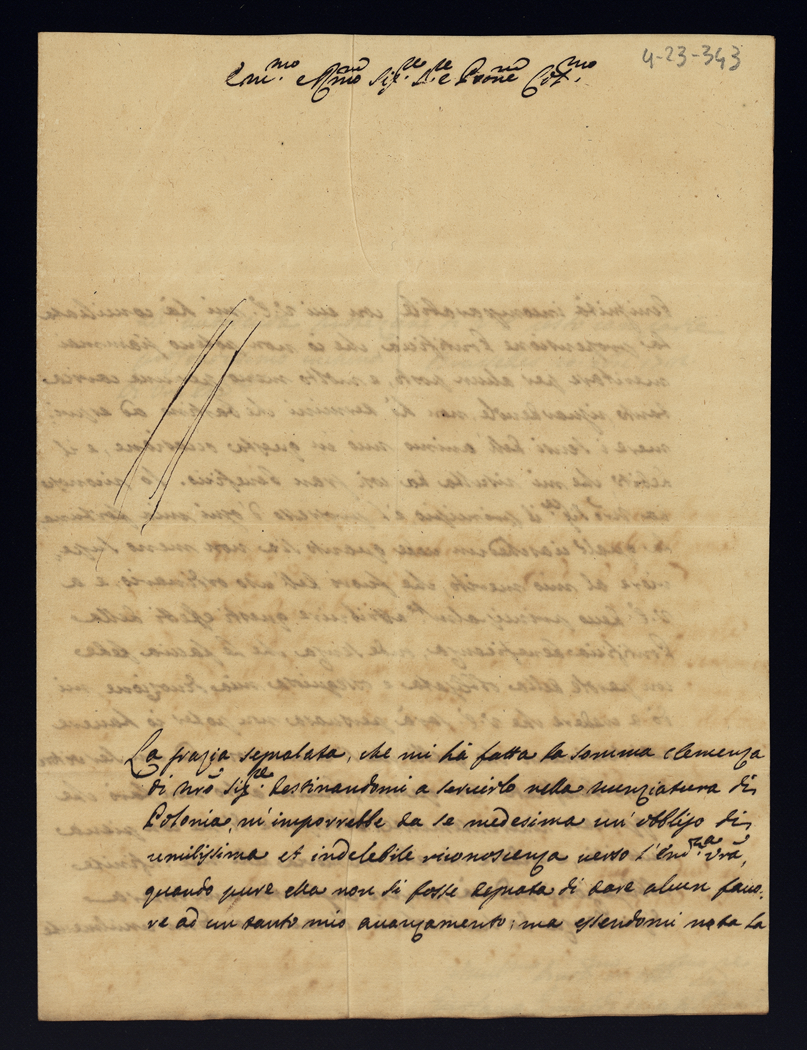 4-23-343
Em.mo e Rmo Sig.re S.re e Prone Col.mo
La grazia segnalata, che mi hà fatta la somma clemenza
di nro Sig.re destinandomi a servirlo nella nunziatura di
Polonia, m'imporrebbe da se medesima un'obbligo di
umilissima et indelebile riconoscenza verso l'Em.za vra,
quando pure ella non si fosse degnata di dare alcun favo-
re ad un tanto mio avanzamento; ma essendomi nota la